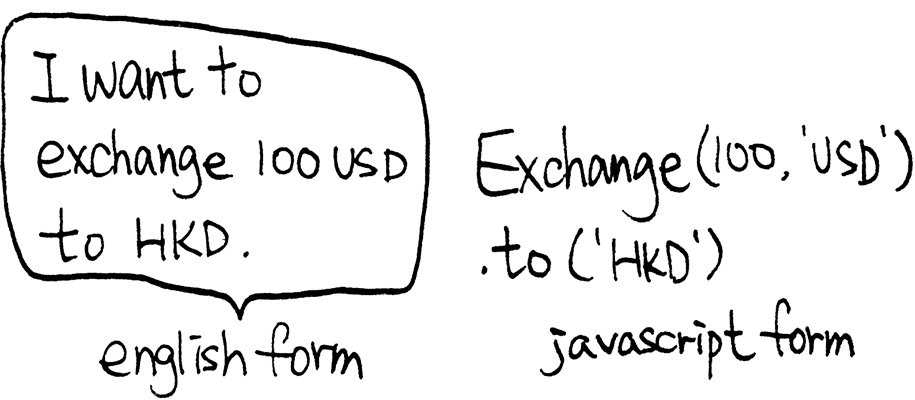 I want to
exchange 100 USD
to HKD.
english form
Exchange(100, 'USD')
.to ('HKD')
javascript form